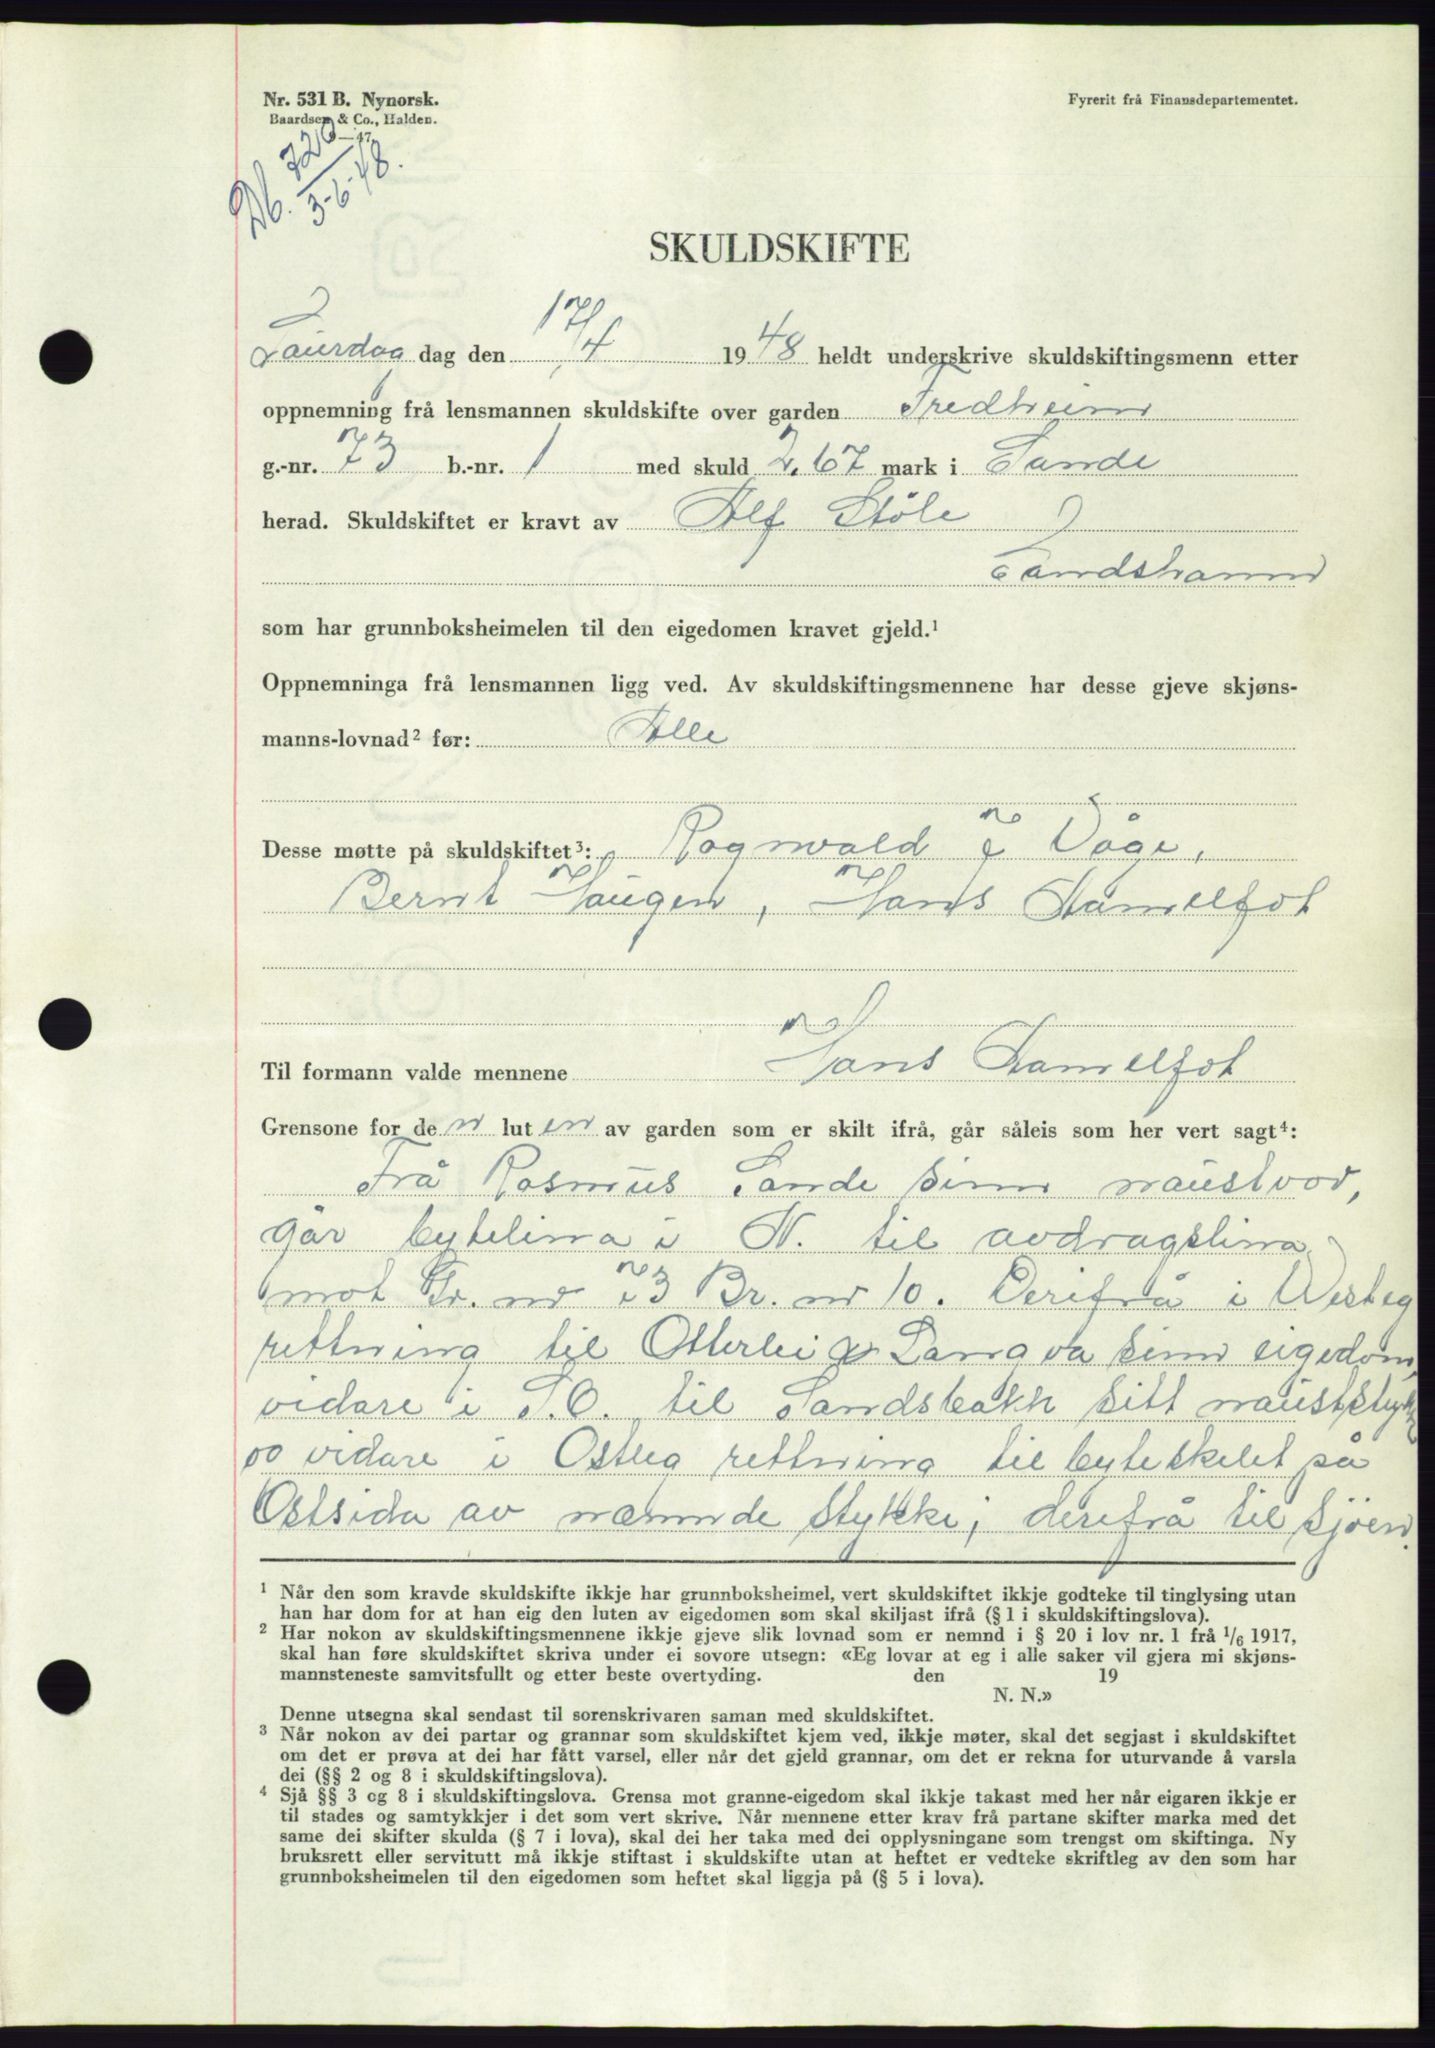 Nr. 531 B. Nynorsk.
Baardsen & Co., Halden.
—47.
Fyrerit frå Finansdepartementet.
Db. 720
3-6-48.
SKULDSKIFTE
Laurdag dag den 17/4 1948 heldt underskrive skuldskiftingsmenn etter
oppnemning frå lensmannen skuldskifte over garden Fredheim
g.-nr. 73 b.-nr. 1 med skuld 2.67 mark i Sande
herad. Skuldskiftet er kravt av Alf Støle
Sandshamn
som har grunnboksheimelen til den eigedomen kravet gjeld.¹
Oppnemninga frå lensmannen ligg ved. Av skuldskiftingsmennene har desse gjeve skjøns-
manns-lovnad² før: Alle
Desse møtte på skuldskiftet³: Ragnvald J Våge,
Bernt Haugen, Hans Hamelfot
Til formann valde mennene Hans Hamelfot
Grensone for den luten av garden som er skilt ifrå, går såleis som her vert sagt⁴:
Frå Rasmus Sande sinn naustvor,
går bytelina i N. til avdragslina
mot Gr. nr 73 Br. nr 10. Derifrå i Vesteg
rettning til Otterlei & Langva sinn eigedom,
vidare i S.O. til Sandsbakk sitt nauststykk
oo vidare i Ostleg rettning til byteskelet på
Ostsida av næmnde stykke, derifrå til sjøen.
¹ Når den som kravde skuldskifte ikkje har grunnboksheimel, vert skuldskiftet ikkje godteke til tinglysing utan
han har dom for at han eig den luten av eigedomen som skal skiljast ifrå (§ 1 i skuldskiftingslova).
² Har nokon av skuldskiftingsmennene ikkje gjeve slik lovnad som er nemnd i § 20 i lov nr. 1 frå 1/6 1917,
skal han føre skuldskiftet skriva under ei sovore utsegn: «Eg lovar at eg i alle saker vil gjera mi skjøns-
mannsteneste samvitsfullt og etter beste overtyding. den 19
N. N.»
Denne utsegna skal sendast til sorenskrivaren saman med skuldskiftet.
³ Når nokon av dei partar og grannar som skuldskiftet kjem ved, ikkje møter, skal det segjast i skuldskiftet
om det er prøva at dei har fått varsel, eller når det gjeld grannar, om det er rekna for uturvande å varsla
dei (§§ 2 og 8 i skuldskiftingslova).
⁴ Sjå §§ 3 og 8 i skuldskiftingslova. Grensa mot granne-eigedom skal ikkje takast med her når eigaren ikkje er
til stades og samtykkjer i det som vert skrive. Når mennene etter krav frå partane skifter marka med det
same dei skifter skulda (§ 7 i lova), skal dei her taka med dei opplysningane som trengst om skiftinga. Ny
bruksrett eller servitutt må ikkje stiftast i skuldskifte utan at heftet er vedteke skriftleg av den som har
grunnboksheimelen til den eigedomen som heftet skal liggja på (§ 5 i lova).